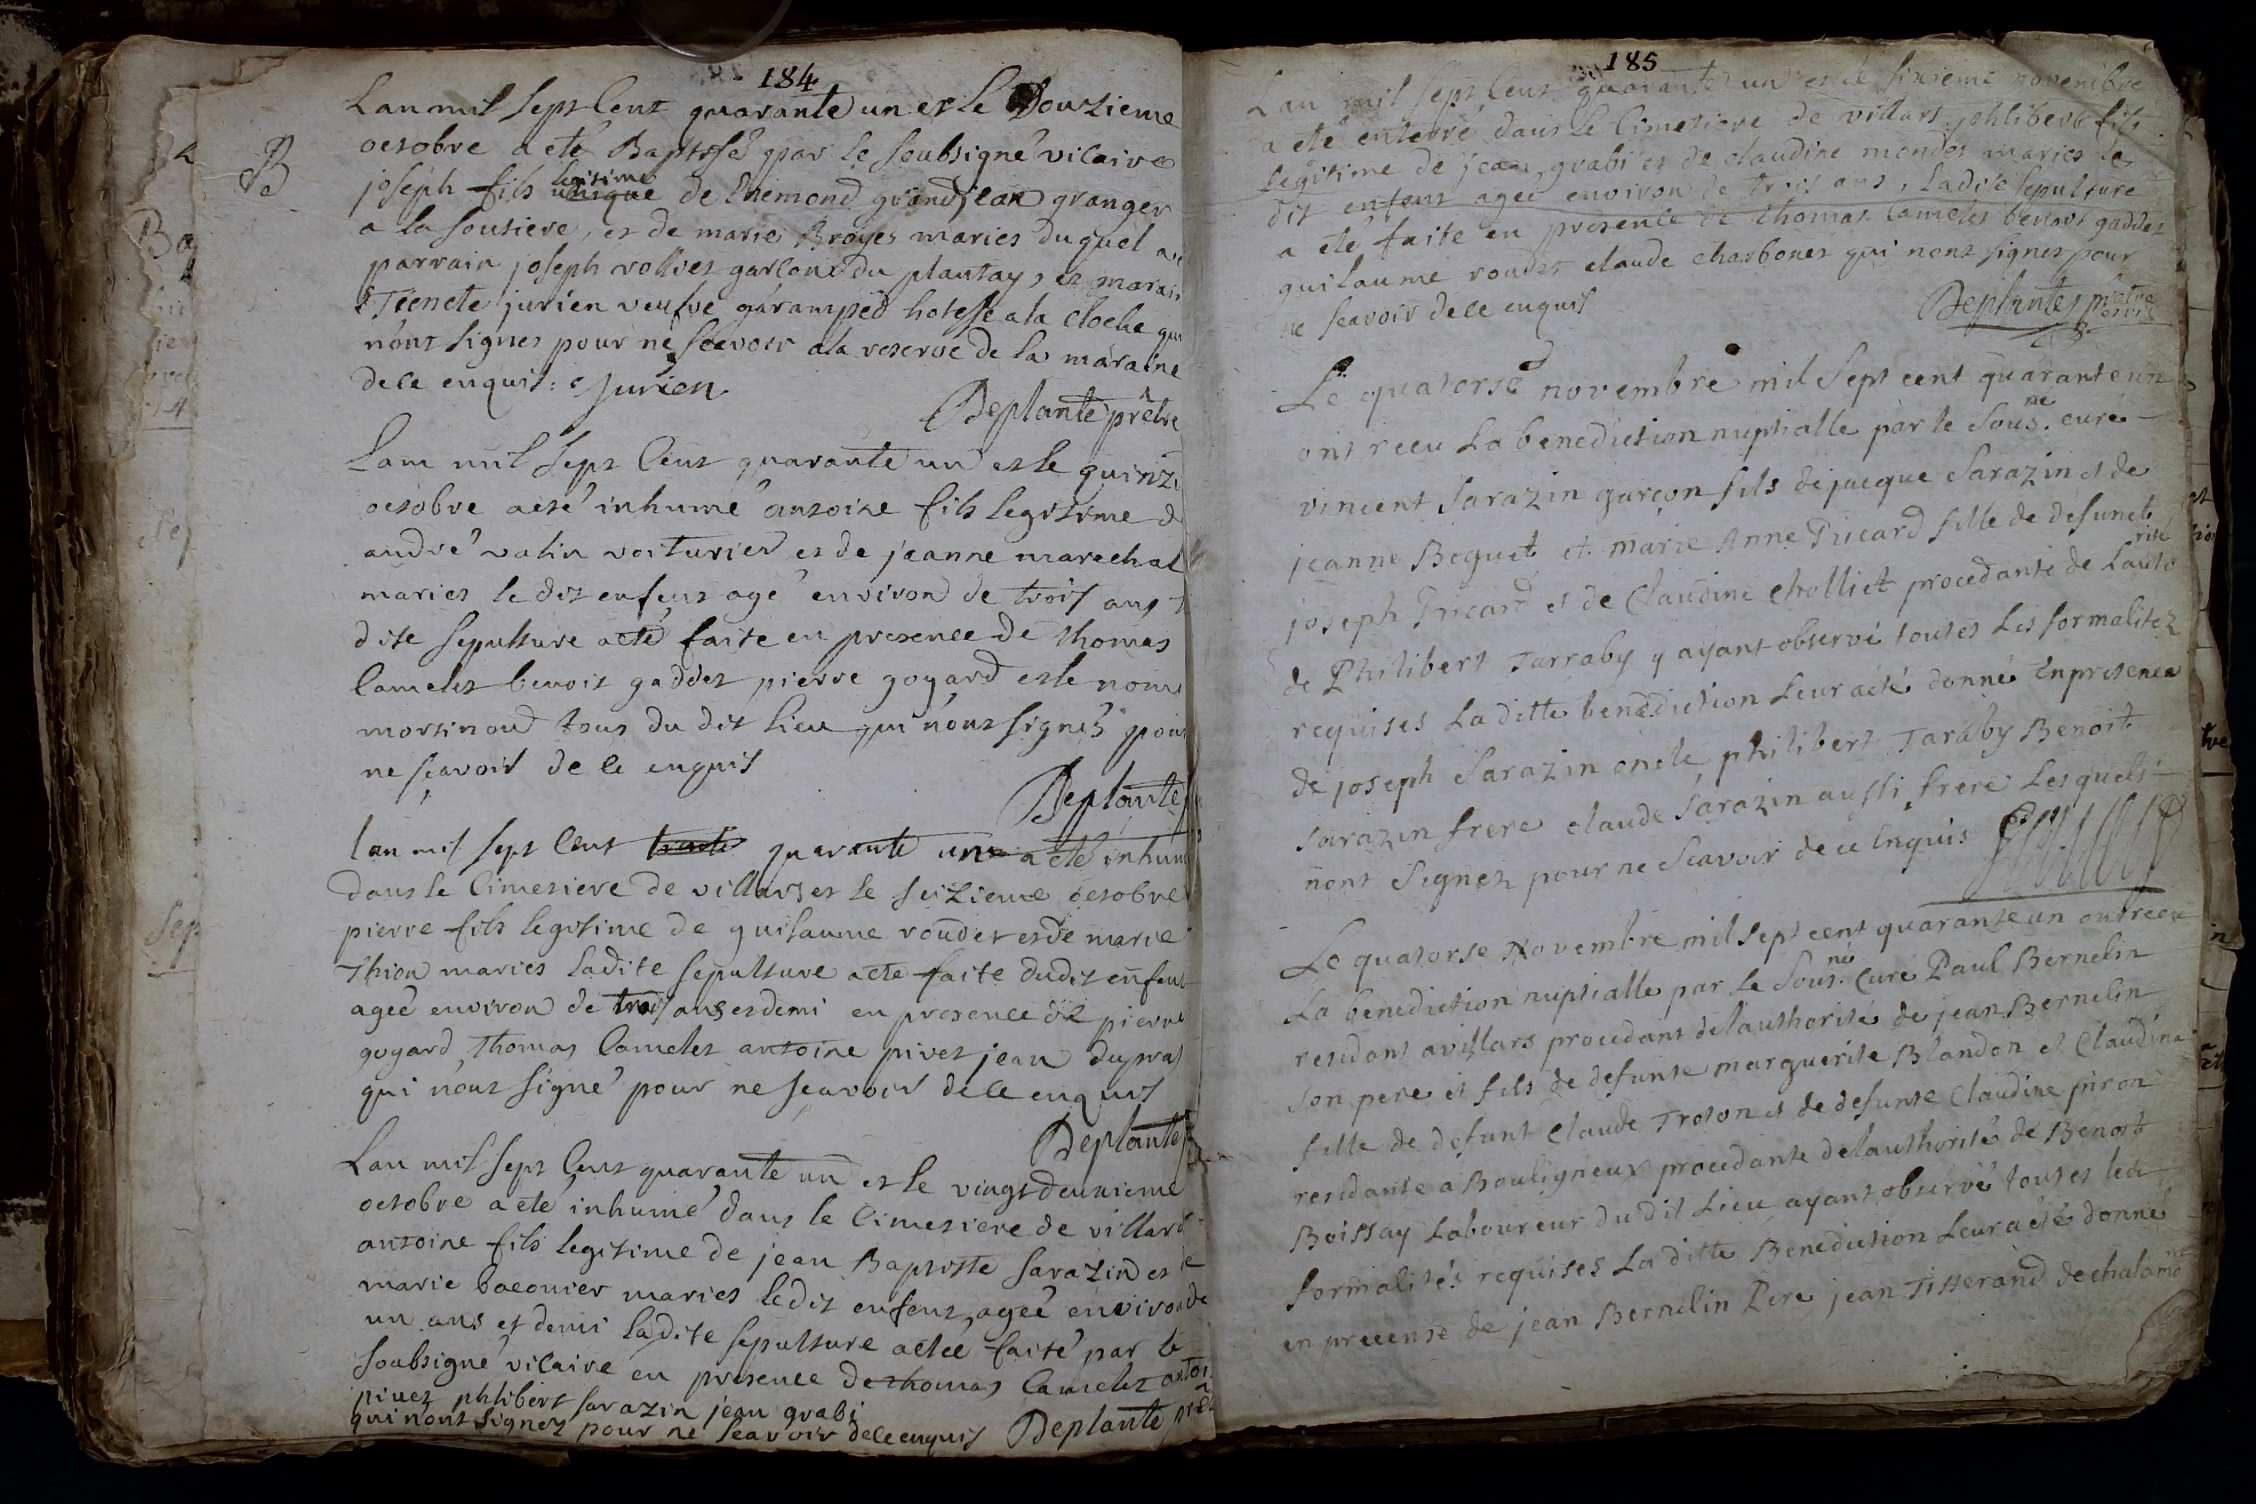 184
Lan mil sept Cent quarante un et le Douzieme
octobre a eté Baptisé par le soubsigné vicaire
B
joseph fils legitime de Enemond grandjean granger
a la soutiere, et de marie Broyes maries duquel a
parrain joseph vollet garcond du plantay, et marain
Tienete jurien veufve garamped hotesse a la Cloche qui
nont signes pour ne scavoir a la reserve de la maraine
de ce enquis : Jurien
Deplante prêtre
Lan mil sept Cent quarante un et le quinzi
octobre a eté inhumé antoine fils legitime d
andré valin voiturier et de jeanne marechal
maries le dit enfent agé environ de trois ans
dite sepulture a eté faite en presence de thomas
Camelet benoit gaddet pierre goyard et le nomé
mortinoud tous du dit lieu qui nont signés pour
ne scavoir de ce enquis
Deplante
lan mil sept Cent trante quarante un a eté inhumé
dans le Cimetiere de villars et le seizieme octobre
pierre fils legitime de guilaume roudet et de marie
Thion maries ladite sepulture a ete faite dudit enfent
ageé environ de trois ans et demi en presence de pierre
goyard, Thomas Camelet antoine pivet jean dupras
qui nont signé pour ne scavoir de ce enquis
Deplante
Lan mil sept Cent quarante un et le vingt deuxieme
octobre a eté inhumé dans le Cimetiere de villard
antoine fils legitime de jean Baptiste sarazin et de
marie baconier maries ledit enfent, ageé environ de
un ans et demi ladite sepulture a eteé faite par le
soubsigné vicaire en presence de thomas Camelet antoi
pivet phlibert sarazin jean grabi
qui nont signez pour ne scavoir de ce enquis Deplante prêt
185
Lan mil sept Cent quarante un et le sixieme novembre
a eté enterré dans le Cimetiere de villars phlibert fils
legitime de jean grabi et de claudine mondet maries le
dit enfent ageé environ de trois ans, ladite sepulture
a eté faite en presence de thomas Camelet benoit gaddet
guilaume roudet claude charbonet qui nont signes pour
ne scavoir de ce enquis
Deplante prêtre
Le quatorse novembre mil sept cent quarante un
ont receu la benediction nuptialle par le sous.né curé
vincent sarazin garçon fils de jacque sarazin et de
jeanne Boguet et marie Anne Pricard fille de defunct
joseph Pricard et de Claudine Cholliet procedante de Lautorité
de Philibert Tarraby y ayant observé toutes Les formalitez
requises La ditte benediction Leur a eté donné En presence
de joseph sarazin oncle philibert Taraby Benoit
sarazin frere claude sarazin aussi frere Lesquels
nont Signez pour ne Scavoir de ce Enquis
Le quatorse Novembre mil sept cent quarante un ont receu
La benediction nuptialle par le Sous.né Curé Paul Bernelin
residant a villars procedant de lauthorité de jean Bernelin
son pere et fils de defunte marguerite Blandon et Claudine
fille de defunt claude Troton et de defunte Claudine piron
residante a Bouligneux procedante de lauthorité de Benoit
Boissay Laboureur du dit Lieu ayant observé toutes les
formalités requises La ditte Benediction Leur a eté donné
en precense de jean Bernelin Pere jean Tisserand de chalamont